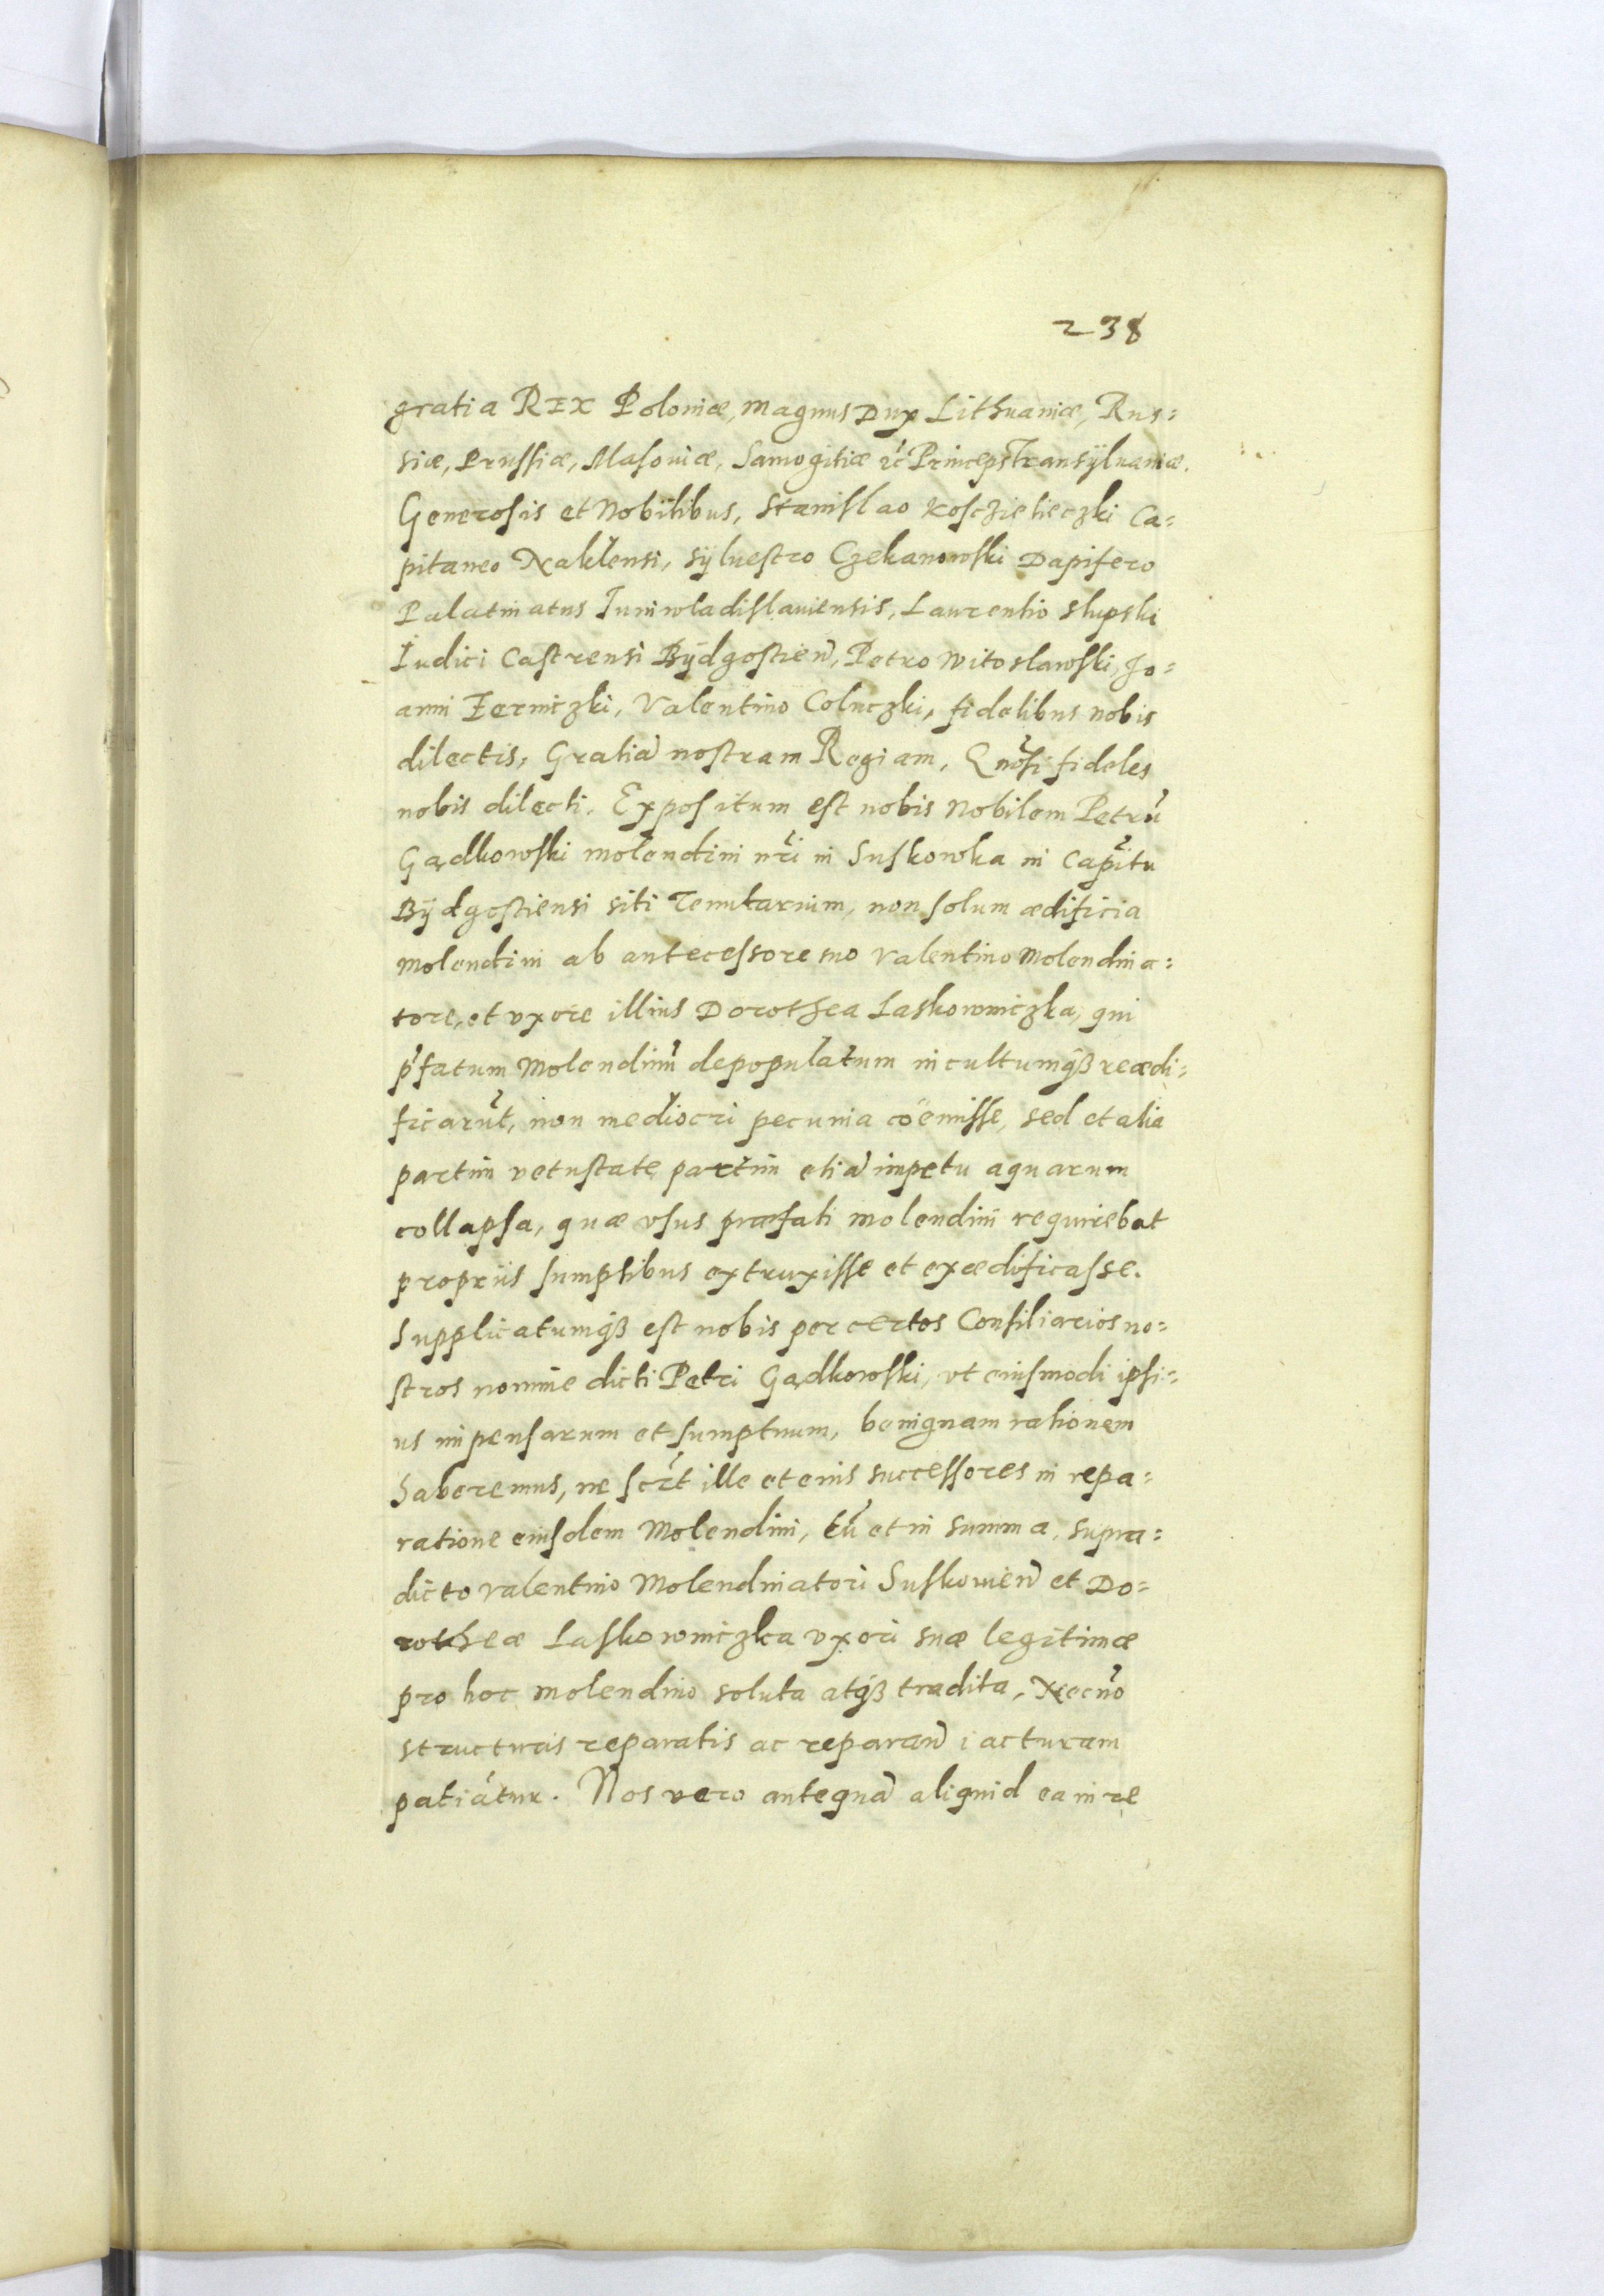 238
gratia REX Poloniæ, magnus Dux Lithuaniæ, Rus=
siæ, Prussiæ, Masouiæ, Samogitiæ &c̃ Princeps Transÿluaniæ.
Generosis et Nobilibus, Stanislao Kosczieleczki Ca=
pitaneo Naklensi, Sÿluestro Czekanowski Dapifero
Palatinatus Iuniwladislauiensis, Laurentio Slupski
Iudici Castrensi Bÿdgostieñ, Petro Witoslawski, Jo=
anni Zerniczki, Valentino Coluczki, fidelibus nobis
dilectis, Gratiã nostram Regiam, Gñosi fideles
nobis dilecti. Expositum est nobis Nobilem Petrũ
Gądkowski molendini nr̃i in Suskowka in Capĩtu
Bÿdgostiensi siti Tenutarium, non solum ædificia
Molendini ab antecessore suo Valentino Molendina=
tore, et vxore illius Dorothea Laskowniczka, qui
p̃fatum Molendinũ depopulatum incultumq̃ß reædi=
ficarũt, non mediocri pecunia coëmisse, sed et alia
partim vetustate partim etiã impetu aquarum
collapsa, quæ vsus præfati molendini requirebat
proprijs sumptibus extruxisse et exædificasse.
Supplicatumq̃ß est nobis per certos Consiliarios no=
stros nomine dicti Petri Gądkowski, vt eiusmodi ipsi=
us impensarum et sumptuum, benignam rationem
haberemus, ne scr̃t ille et eius successores in repa=
ratione eiusdem Molendini, tũ et in summa, supra=
dicto Valentino Molendinatori Suskouieñ et Do=
rotheæ Laskowniczka vxori suæ legitimæ
pro hoc molendino soluta atq̃ß tradita, Necñõ
structuris reparatis ac reparañ iacturam
patiãtur. Nos vero antequã aliquid ea in re